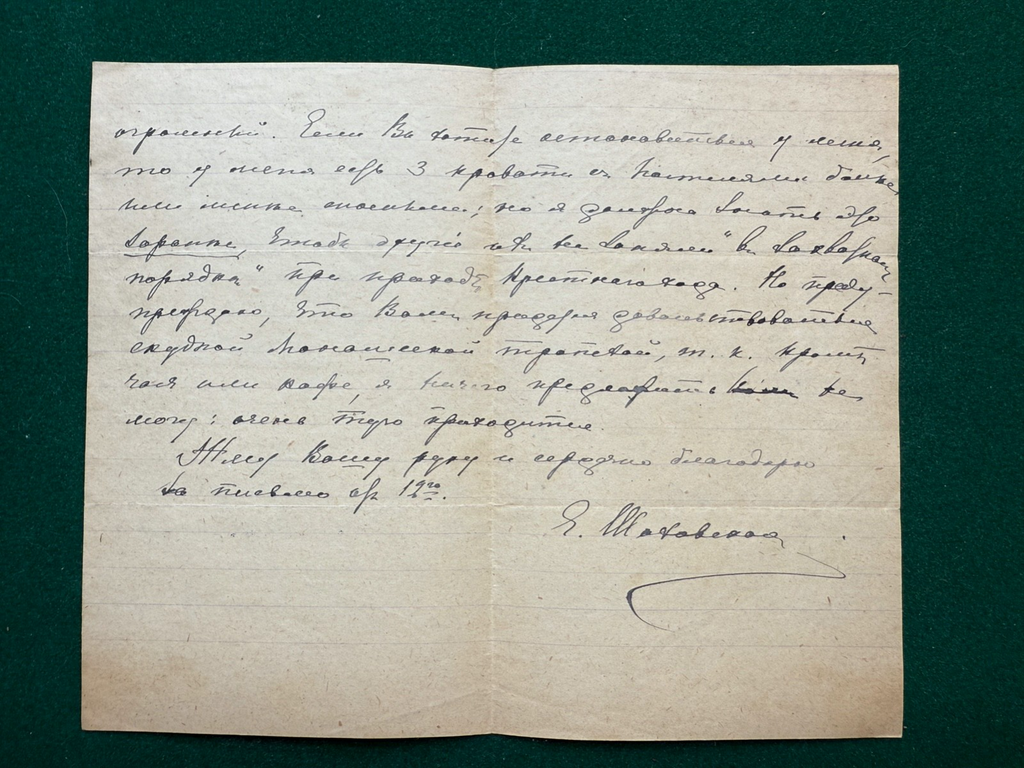 огромный. Если Вы хотите остановиться у меня,
то у меня есть 3 кровати съ постелями более
или менее сносными; но я должна знать это
заранее, чтобы другие их не заняли "въ захватномъ
порядке" при проходѣ крестнаго хода. Но преду-
преждаю, что Вамъ придется довольствоваться
скудной монашеской трапезой, т. к. кромѣ
чая или кофе, я ничего предложить не
могу: очень туго приходится.
Жму Вашу руку и сердечно благодарю
за письмо от 19го.
Е. Шаховская